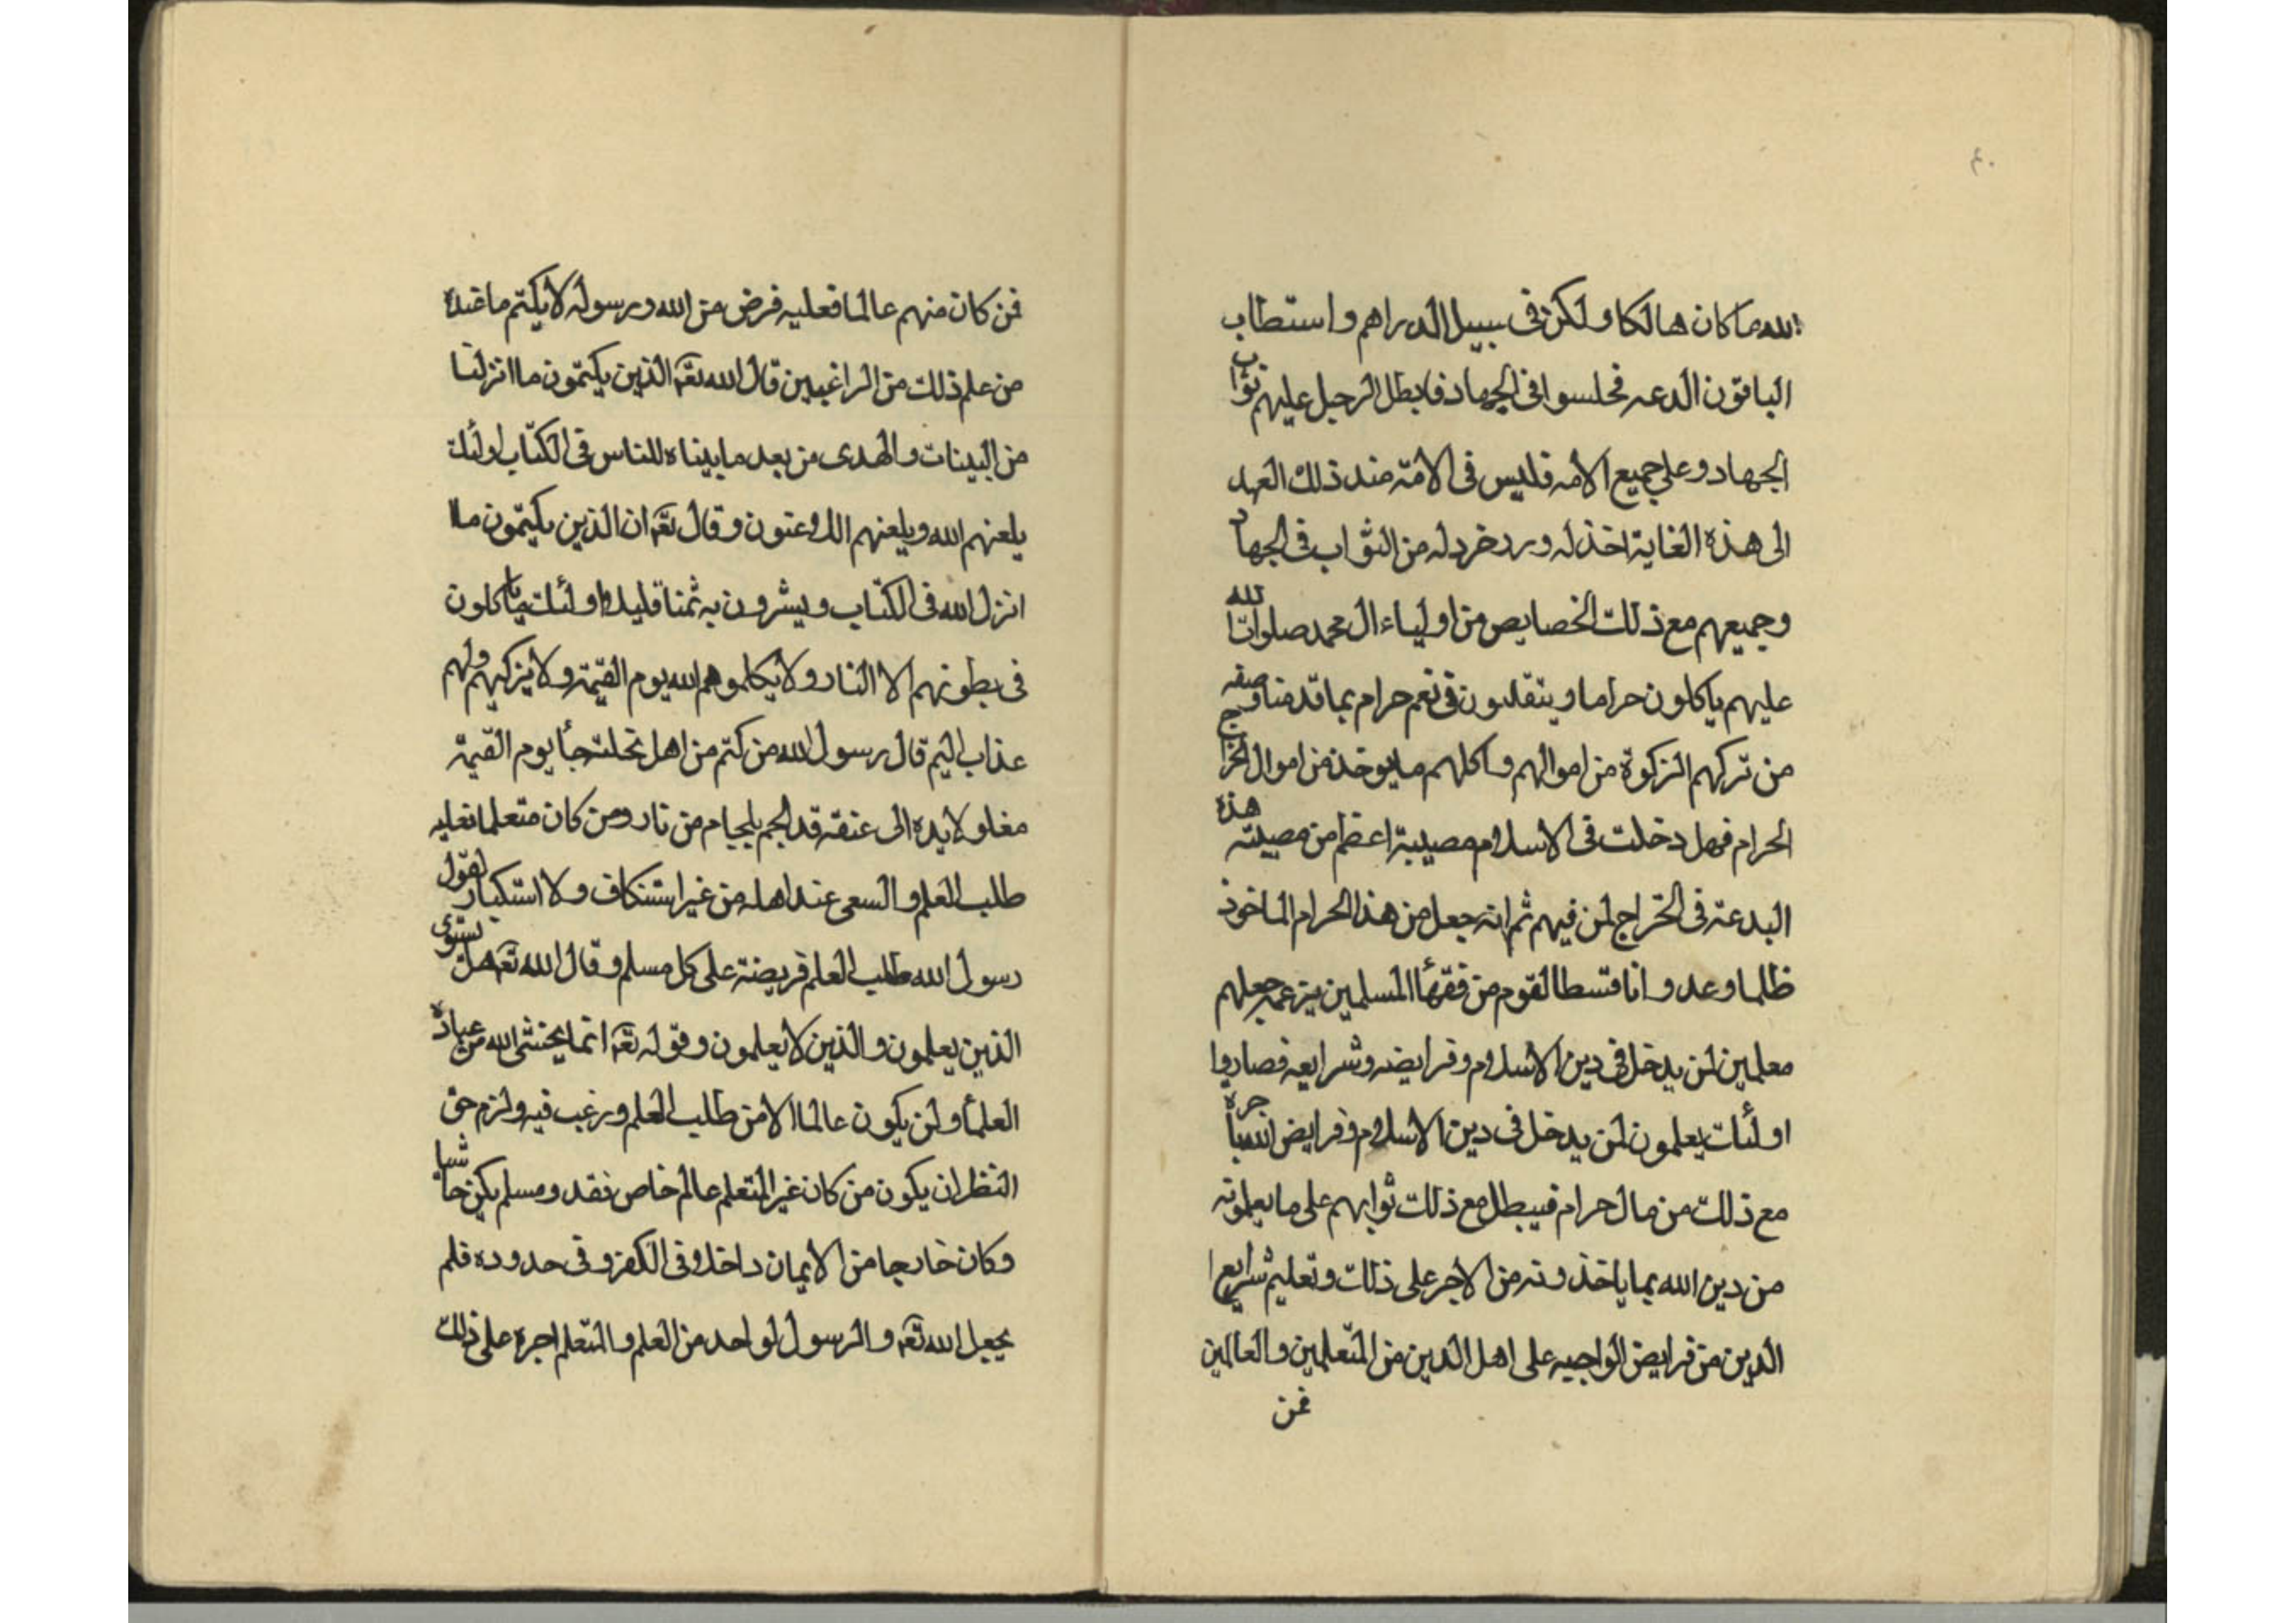 ٤٠
الله ما كان هالكا ولكن فى سبيل الدراهم واستطاب
الباقون الدعه فجلسوا فى الجهاد فابطل الرجل عليهم ثواب
الجهاد وعلى جميع الامه فليس فى الامّة منذ ذلك العهد
الى هذه الغاية اخذ له ورد خرد له من الثواب فى الجهاد
وجميعهم مع ذلك الخصايص من اولياء ال محمد صلوات الله
عليهم ياكلون حراما ويتقلبون فى نعم حرام بما قدمنا وصفه
من تركهم الزكوة من اموالهم واكلهم ما يوخذ من اموال الخراج
الحرام فهل دخلت فى الاسلام مصيبة اعظم من مصيبته هذه
البدعة فى الخراج لمن فيهم ثم انه جعل من هذا الحرام الماخوذ
ظلما وعدوانا قسطا لقوم من فقهأ المسلمين بزعمه جعلهم
معلمين لمن يدخل فى دين الاسلام وفرايضه وشرايعه فصاروا
اولئك يعلمون لمن يدخل فى دين الاسلام وفرايض الله باجرة
مع ذلك من مال حرام فيبطل مع ذلك ثوابهم على ما يعلمونه
من دين الله بما ياخذونه من الاجر على ذلك وتعليم شرايع
الدين من فرايض الواجبه على اهل الدين من المتعلمين والعالمين
فمن
فمن كان منهم عالما فعليه فرض من الله ورسوله لا يكتم ما عنده
من علم ذلك من الراغبين قال الله تعه الذين يكتمون ما انزلنا
من البينات والهدى من بعد ما بيناه للناس فى الكتاب اولئك
يلعنهم الله ويلعنهم اللاعنون وقال تعه ان الذين يكتمون ما
انزل الله فى الكتاب ويشرون به ثمنا قليلا اولئك ما ياكلون
فى بطونهم الا النار ولا يكلموهم الله يوم القيمة ولا يزكيهم ولهم
عذاب اليم قال رسول الله من كتم من اهل نحلت جأ يوم القيمة
مغلولا يده الى عنقه قد الجم بلجام من نار ومن كان متعلما فعليه
طلب العلم والسعى عند اهله من غير استنكاف ولا استكبار لقول
رسول الله طلب العلم فريضة على كل مسلم وقال الله تعه هل يستوى
الذين يعلمون والذين لا يعلمون وقوله تعه انما يخشى الله من عباده
العلمأ ولن يكون عالما الا من طلب العلم ورغب فيه ولزم حق
النظر ان يكون من كان غير المتعلم عالم خاص فقد ومسلم يكن حاشا
وكان خارجا من الايمان داخلا فى الكفر وفى حدوده فلم
يجعل الله تعه والرسول لواحد من العلم والمتعلم اجرة على ذلك